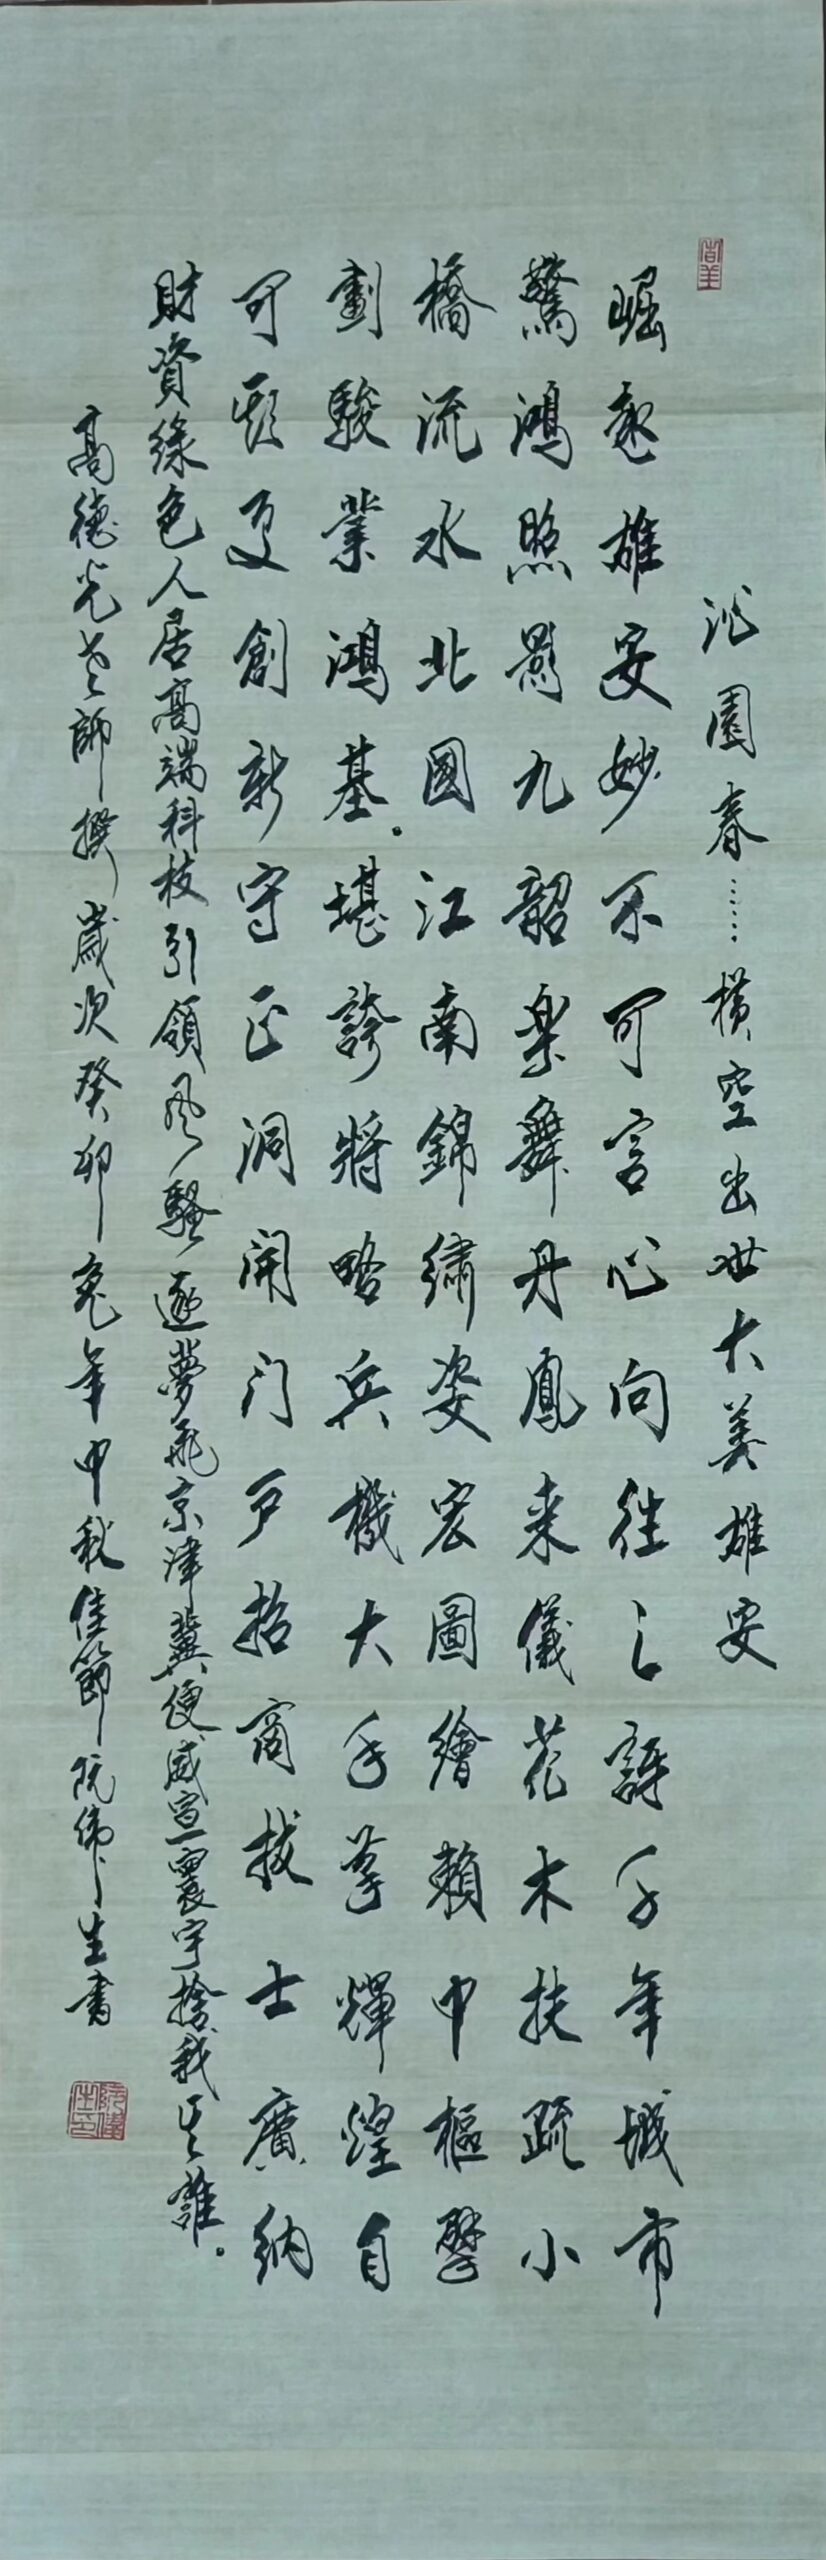 沁園春……橫空出世大美雄安
崛起雄安妙不可言心向往之訝千年城市
驚鴻照影九韶樂舞丹鳳来儀花木扶疏小
橋流水北國江南錦繡姿宏圖繪賴中樞擘
劃駿業鴻基。堪誇將略兵機大手筆輝煌自
可期更創新守正洞開门户招商拔士廣納
財資綠色人居高端科技引領风騷逐夢飛京津冀便威宣寰宇捨我其誰。
高德光老師撰歲次癸卯兔年中秋佳節阮偉生書
阮偉生印